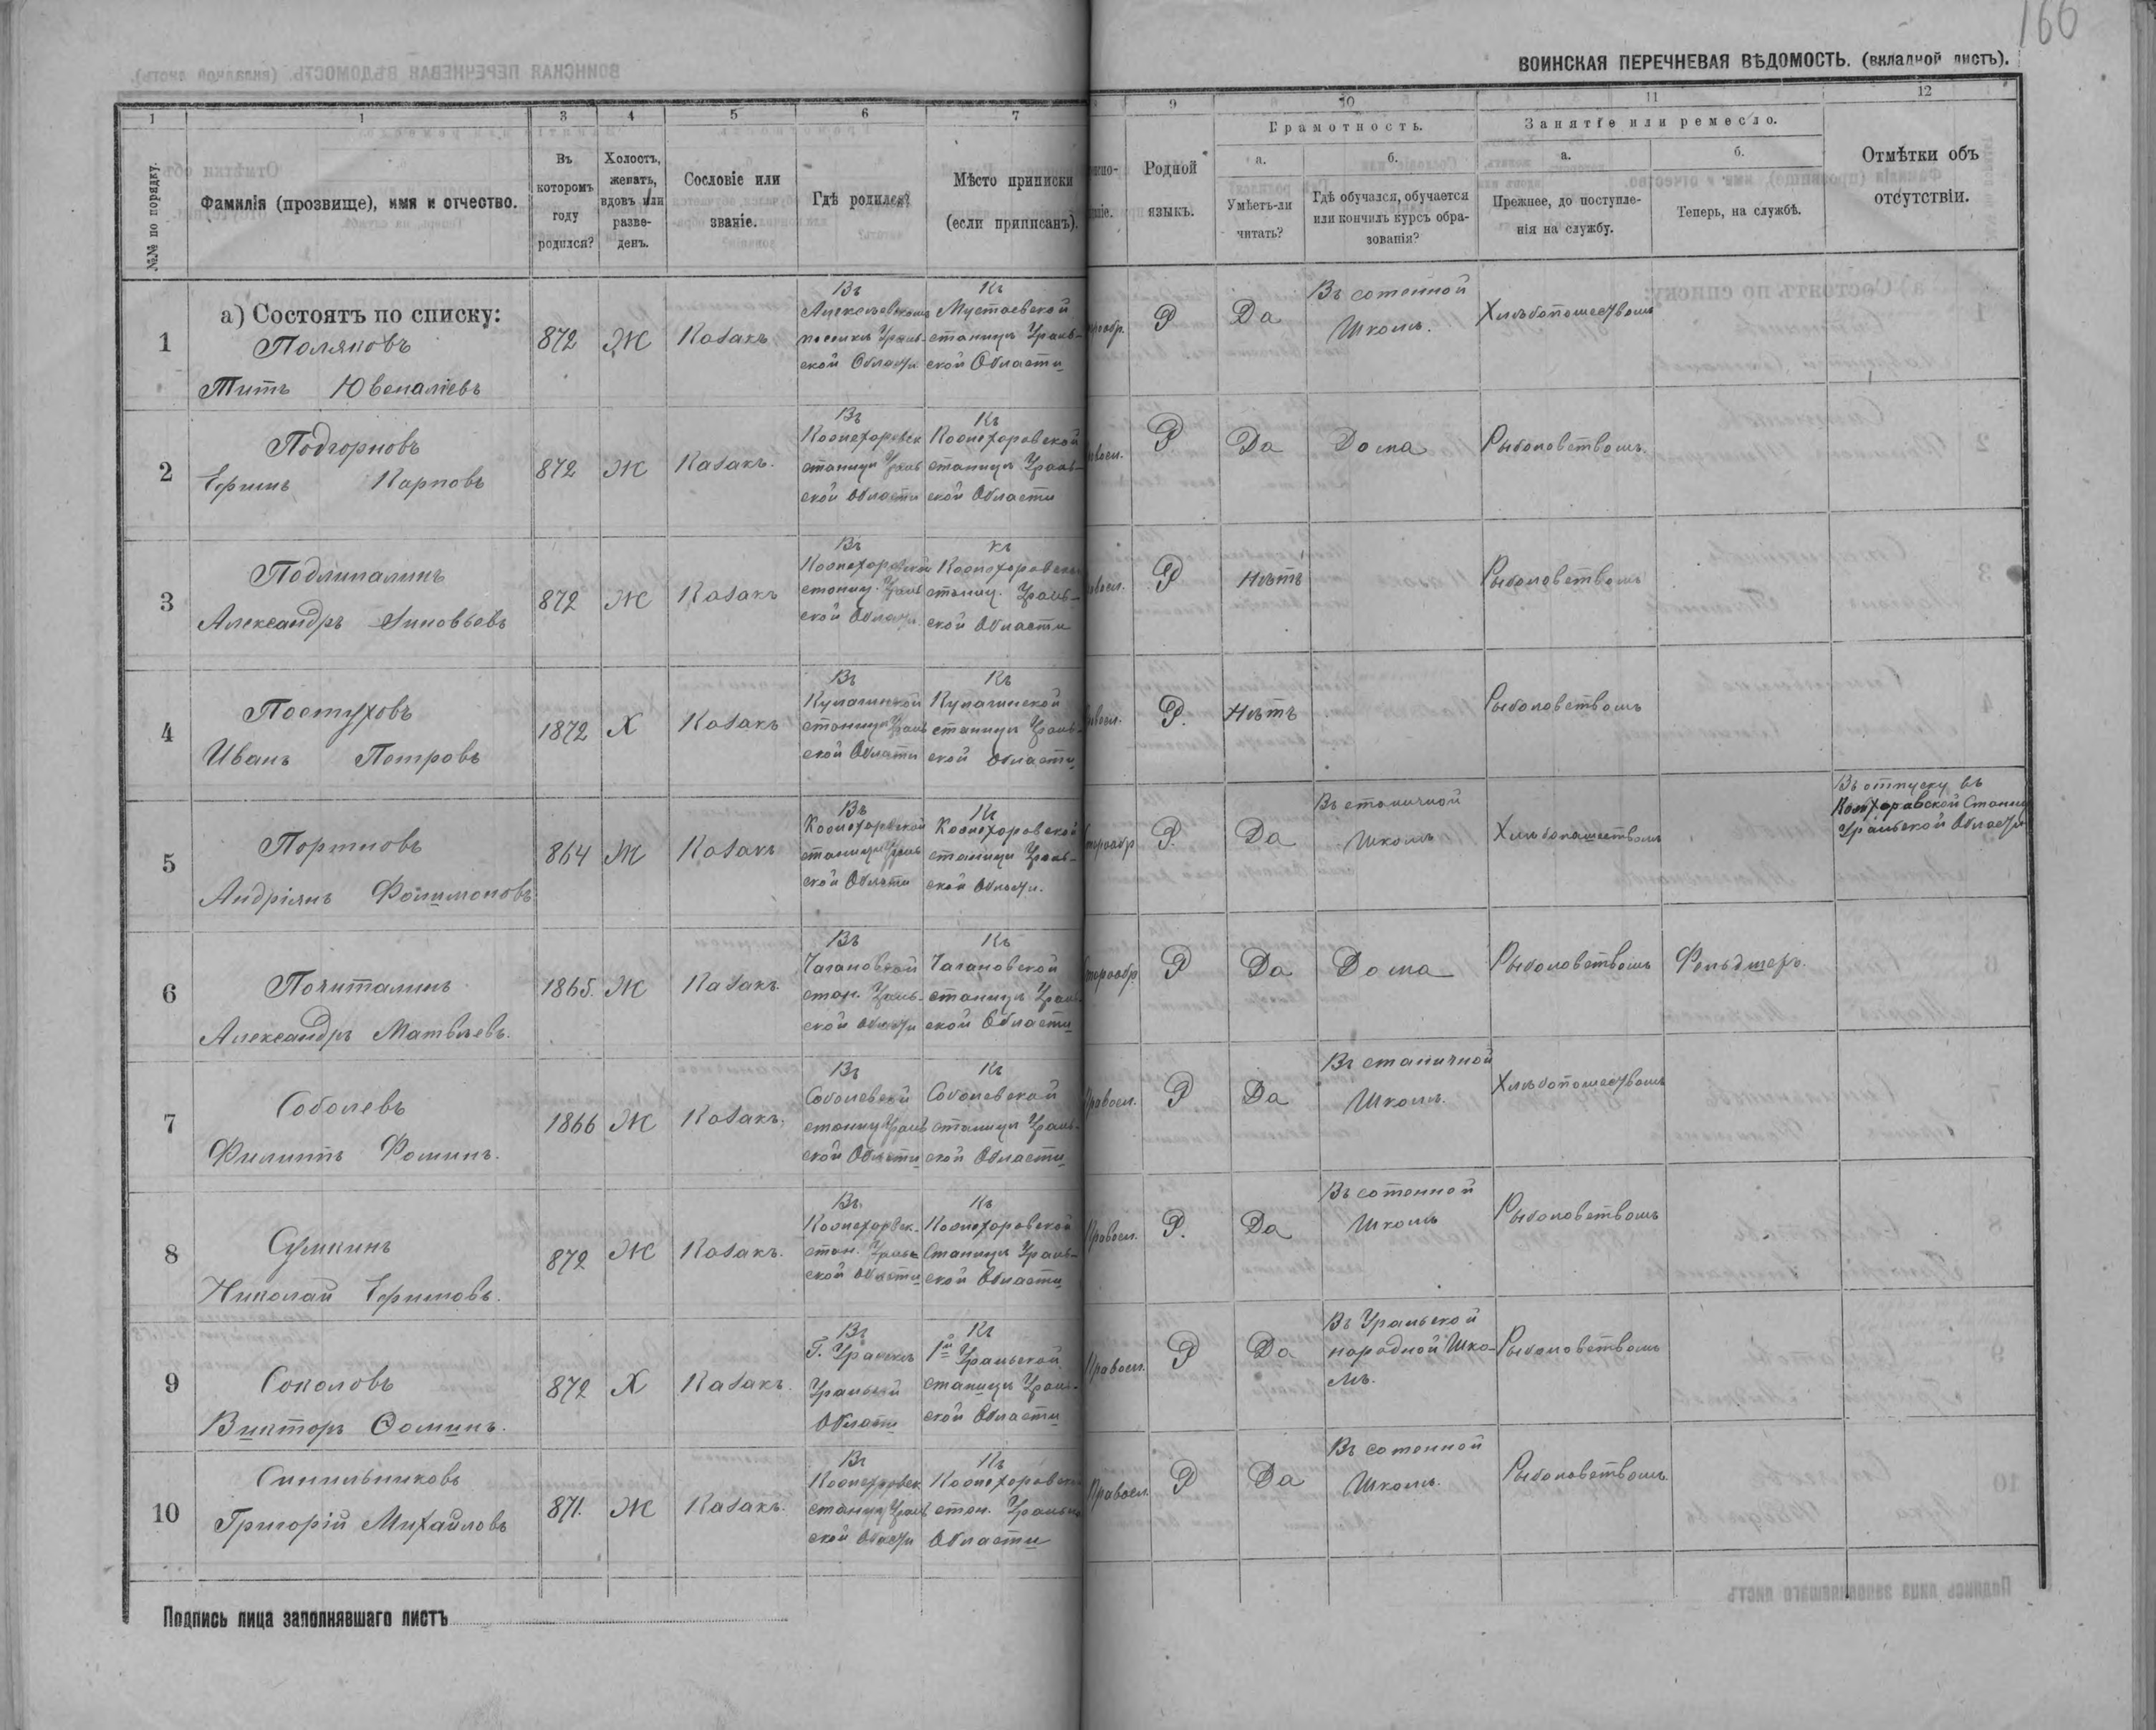 166
ВОИНСКАЯ ПЕРЕЧНЕВАЯ ВѢДОМОСТЬ. (вкладной листъ).
1 1 3 4 5 6 7 9 10 11 12
№№ по порядку.
Фамилія (прозвище), имя и отчество.
Въ которомъ году родился?
Холостъ, женатъ, вдовъ или разведенъ.
Сословіе или званіе.
Гдѣ родился?
Мѣсто приписки (если приписанъ).
Родной языкъ.
Грамотность.
а.
Умѣетъ-ли читать?
б.
Гдѣ обучался, обучается или кончилъ курсъ образованія?
Занятіе или ремесло.
а.
Прежнее, до поступленія на службу.
б.
Теперь, на службѣ.
Отмѣтки объ отсутствіи.
а) Состоятъ по списку:
1
Поляковъ
Титъ Ювеналіевъ
872 Ж Казакъ
Въ
поселкѣ Ураль-
ской Области
Къ
Мустаевской
станицѣ Ураль-
ской Области
Р Да
Въ сотенной
Школѣ.
Хлѣбопашествомъ
2
Подгорновъ
Ефимъ Карповъ
872 Ж Казакъ.
Въ
станицѣ Ураль
ской Области
Къ
станицѣ Ураль-
ской Области
Р Да Дома Рыболовствомъ.
3
Подлипалинъ
Александръ Зиновьевъ
872 Ж Казакъ
Въ
станиц. Ураль
ской Области.
къ
станиц. Ураль-
ской Области
Р Нѣтъ Рыболовствомъ
4
Постуховъ
Иванъ Петровъ
1872 Х Казакъ
Въ
Кулагинской
станицѣ Ураль
ской Области
Къ
Кулагинской
станицѣ Ураль-
ской Области
Р. Нѣтъ Рыболовствомъ
5
Портновъ
Андріянъ Филимоновъ
864 Ж Казакъ
Въ
станицѣ Ураль
ской Области
Къ
станицѣ Ураль-
ской Области.
Р. Да
Въ станичной
Школѣ
Хлѣбопашествомъ
Въ отпуску въ
Уральской Области
6
Почиталинъ
Александръ Матвѣевъ.
1865. Ж Казакъ.
Въ
Чагановской
стан. Ураль-
ской Области
Къ
Чагановской
станицѣ Ураль-
ской Области
Р Да Дома Рыболовствомъ Фельдшеръ.
7
Соболевъ
Филиппъ Фоминъ.
1866 Ж Казакъ.
Въ
Соболевской
станицѣ Ураль
ской Области
Къ
Соболевской
станицѣ Ураль-
ской Области
Правосл. Р Да
Въ станичной
Школѣ.
Хлѣбопашествомъ
8
Сумкинъ
Николай Ефимовъ.
872 Ж Казакъ.
Въ
стан. Ураль
ской Области
Къ
Станицѣ Ураль-
ской Области
Правосл. Р. Да
Въ сотенной
Школѣ
Рыболовствомъ
9
Соколовъ
Викторъ Ѳоминъ.
872 Х Казакъ.
Въ
Г. Уральскѣ
Уральской
Области
Къ
1й Уральской
станицѣ Ураль-
ской Области
Правосл. Р Да
Въ Уральской
народной Шко-
лѣ.
Рыболовствомъ
10
Синильниковъ
Григорій Михайловъ
871. Ж Казакъ.
Въ
станиц Ураль
ской Области
Къ
стан. Уральской
Области
Правосл. Р Да
Въ сотенной
Школѣ.
Рыболовствомъ.
Подпись лица заполнявшаго листъ